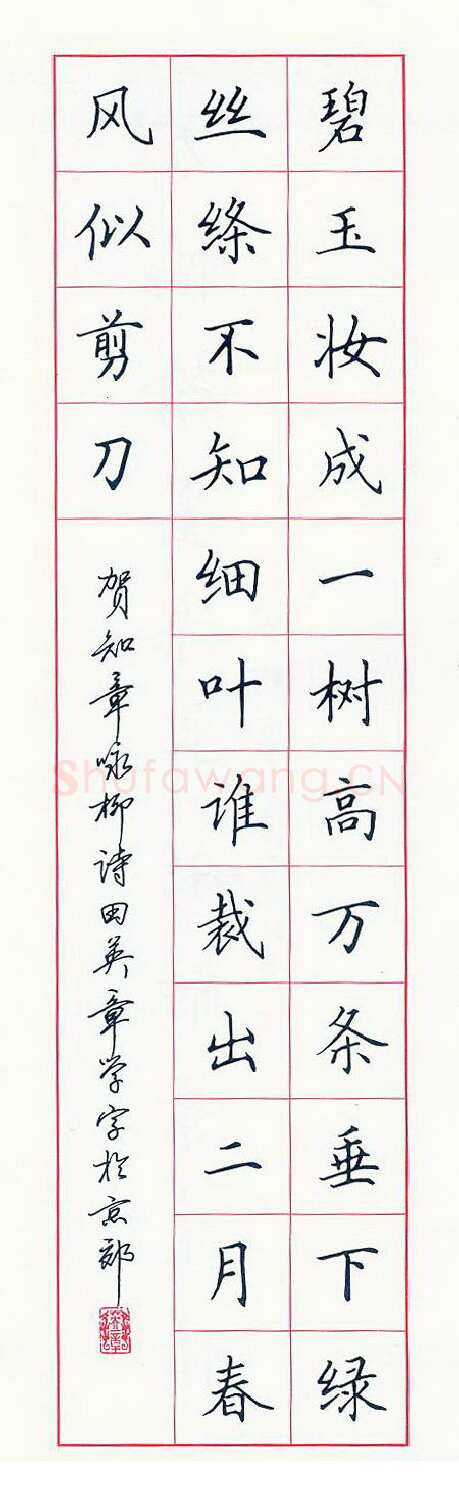 碧玉妆成一树高万条垂下绿
丝绦不知细叶谁裁出二月春
风似剪刀
贺知章咏柳诗田英章学字於京都
Shufawang.CN